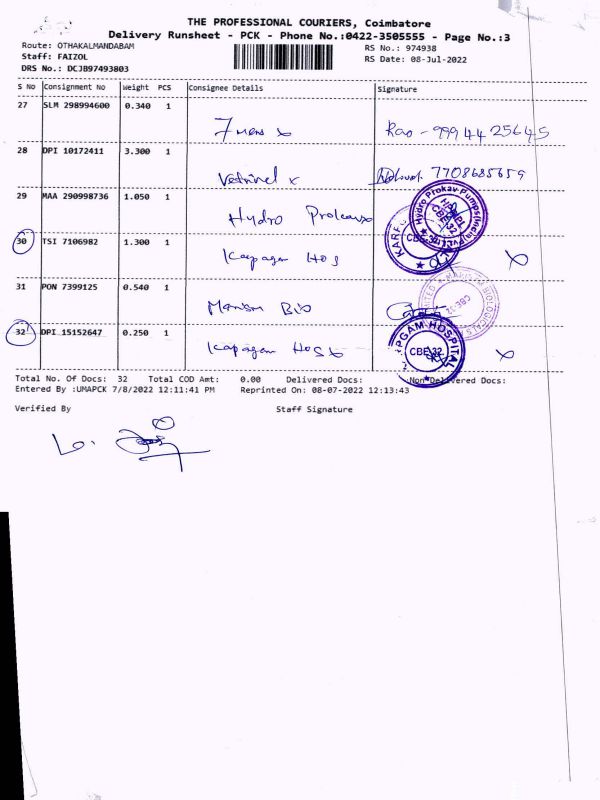 THE PROFESSIONAL COURIERS, Coimbatore
Delivery Runsheet - PCK - Phone No.:0422-3505555 - Page No.:3
Route: OTHAKALMANDABAM RS No.: 974938
Staff: FAIZOL RS Date: 08-Jul-2022
DRS No.: DCJB97493803
S No Consignment No Weight PCS Consignee Details Signature
27 SLM 298994600 0.340 1
Rao - 9994425645
28 DPI 10172411 3.300 1
7708685659
29 MAA 290998736 1.050 1
Hydro
Hydro Prokav Pumps(India)Pvt
CBE 32
30 TSI 7106982 1.300 1
Kapagam Hos
31 PON 7399125 0.540 1
Bio
BIOLOGICALS
CBE-32
32 DPI 15152647 0.250 1
Kapagam Host
HOSPITAL
CBE 32
Total No. Of Docs: 32 Total COD Amt: 0.00 Delivered Docs: Non Delivered Docs:
Entered By :UMAPCK 7/8/2022 12:11:41 PM Reprinted On: 08-07-2022 12:13:43
Verified By Staff Signature